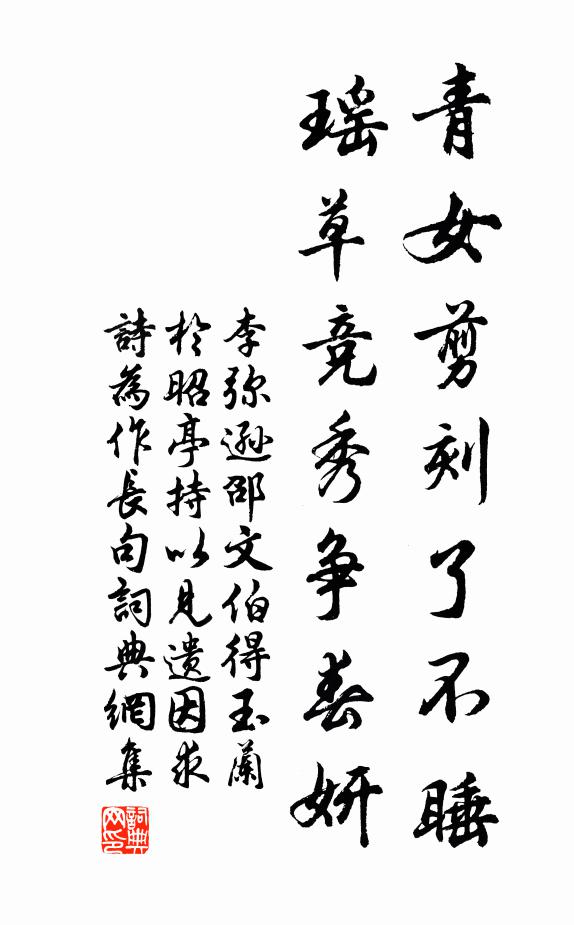 青女剪刻了不睡
瑶草竞秀争春妍
李弥逊邵文伯得玉蘭
於昭亭持以見遺因求
詩為作長句詞典網集
詞典网印